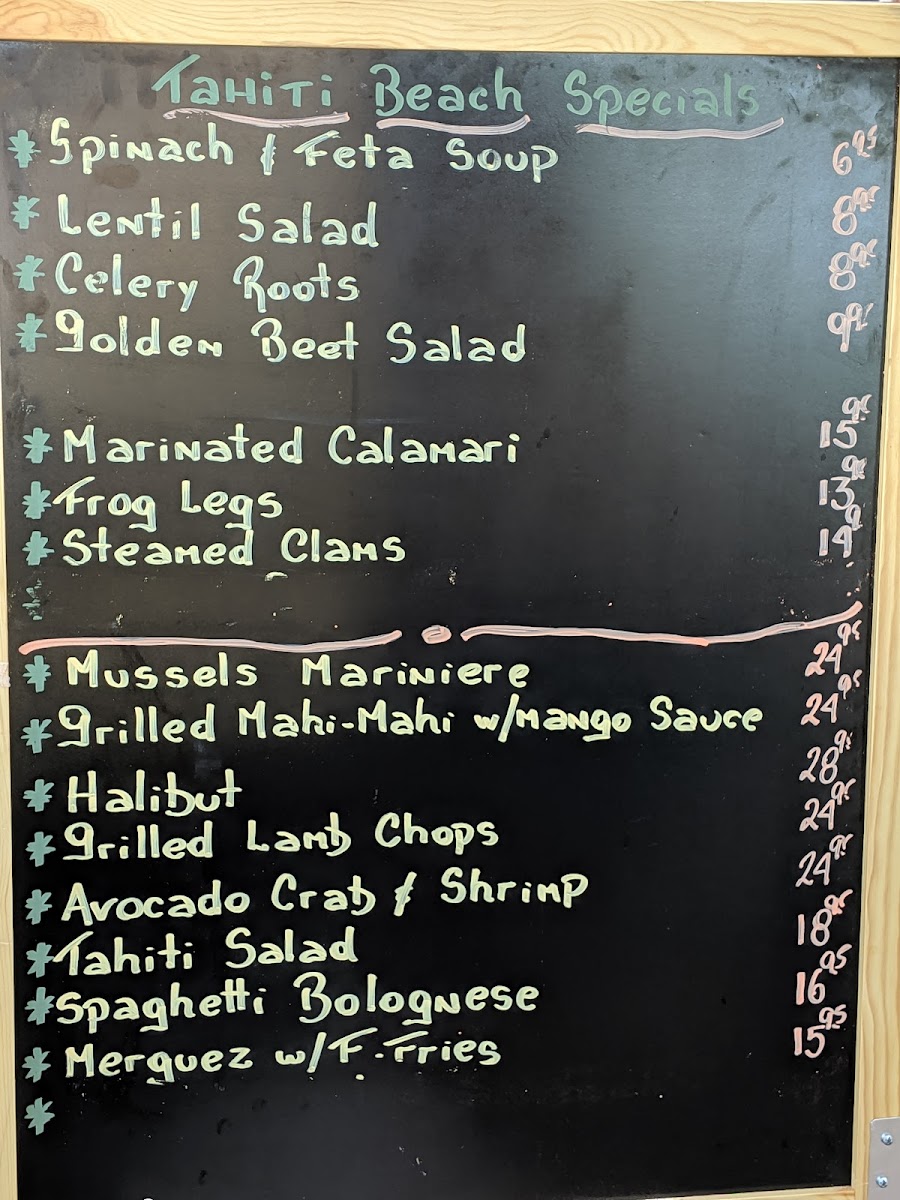 Tahiti Beach Specials
* Spinach & Feta Soup 6.95
* Lentil Salad 8.95
* Celery Roots 8.95
* Golden Beet Salad 9.95
* Marinated Calamari 15.95
* Frog Legs 13.95
* Steamed Clams 14.9
* Mussels Mariniere 24.95
* Grilled Mahi-Mahi w/Mango Sauce 24.95
* Halibut 28.95
* Grilled Lamb Chops 24.95
* Avocado Crab & Shrimp 24.95
* Tahiti Salad 18.95
* Spaghetti Bolognese 16.95
* Merguez w/F.Fries 15.95
*